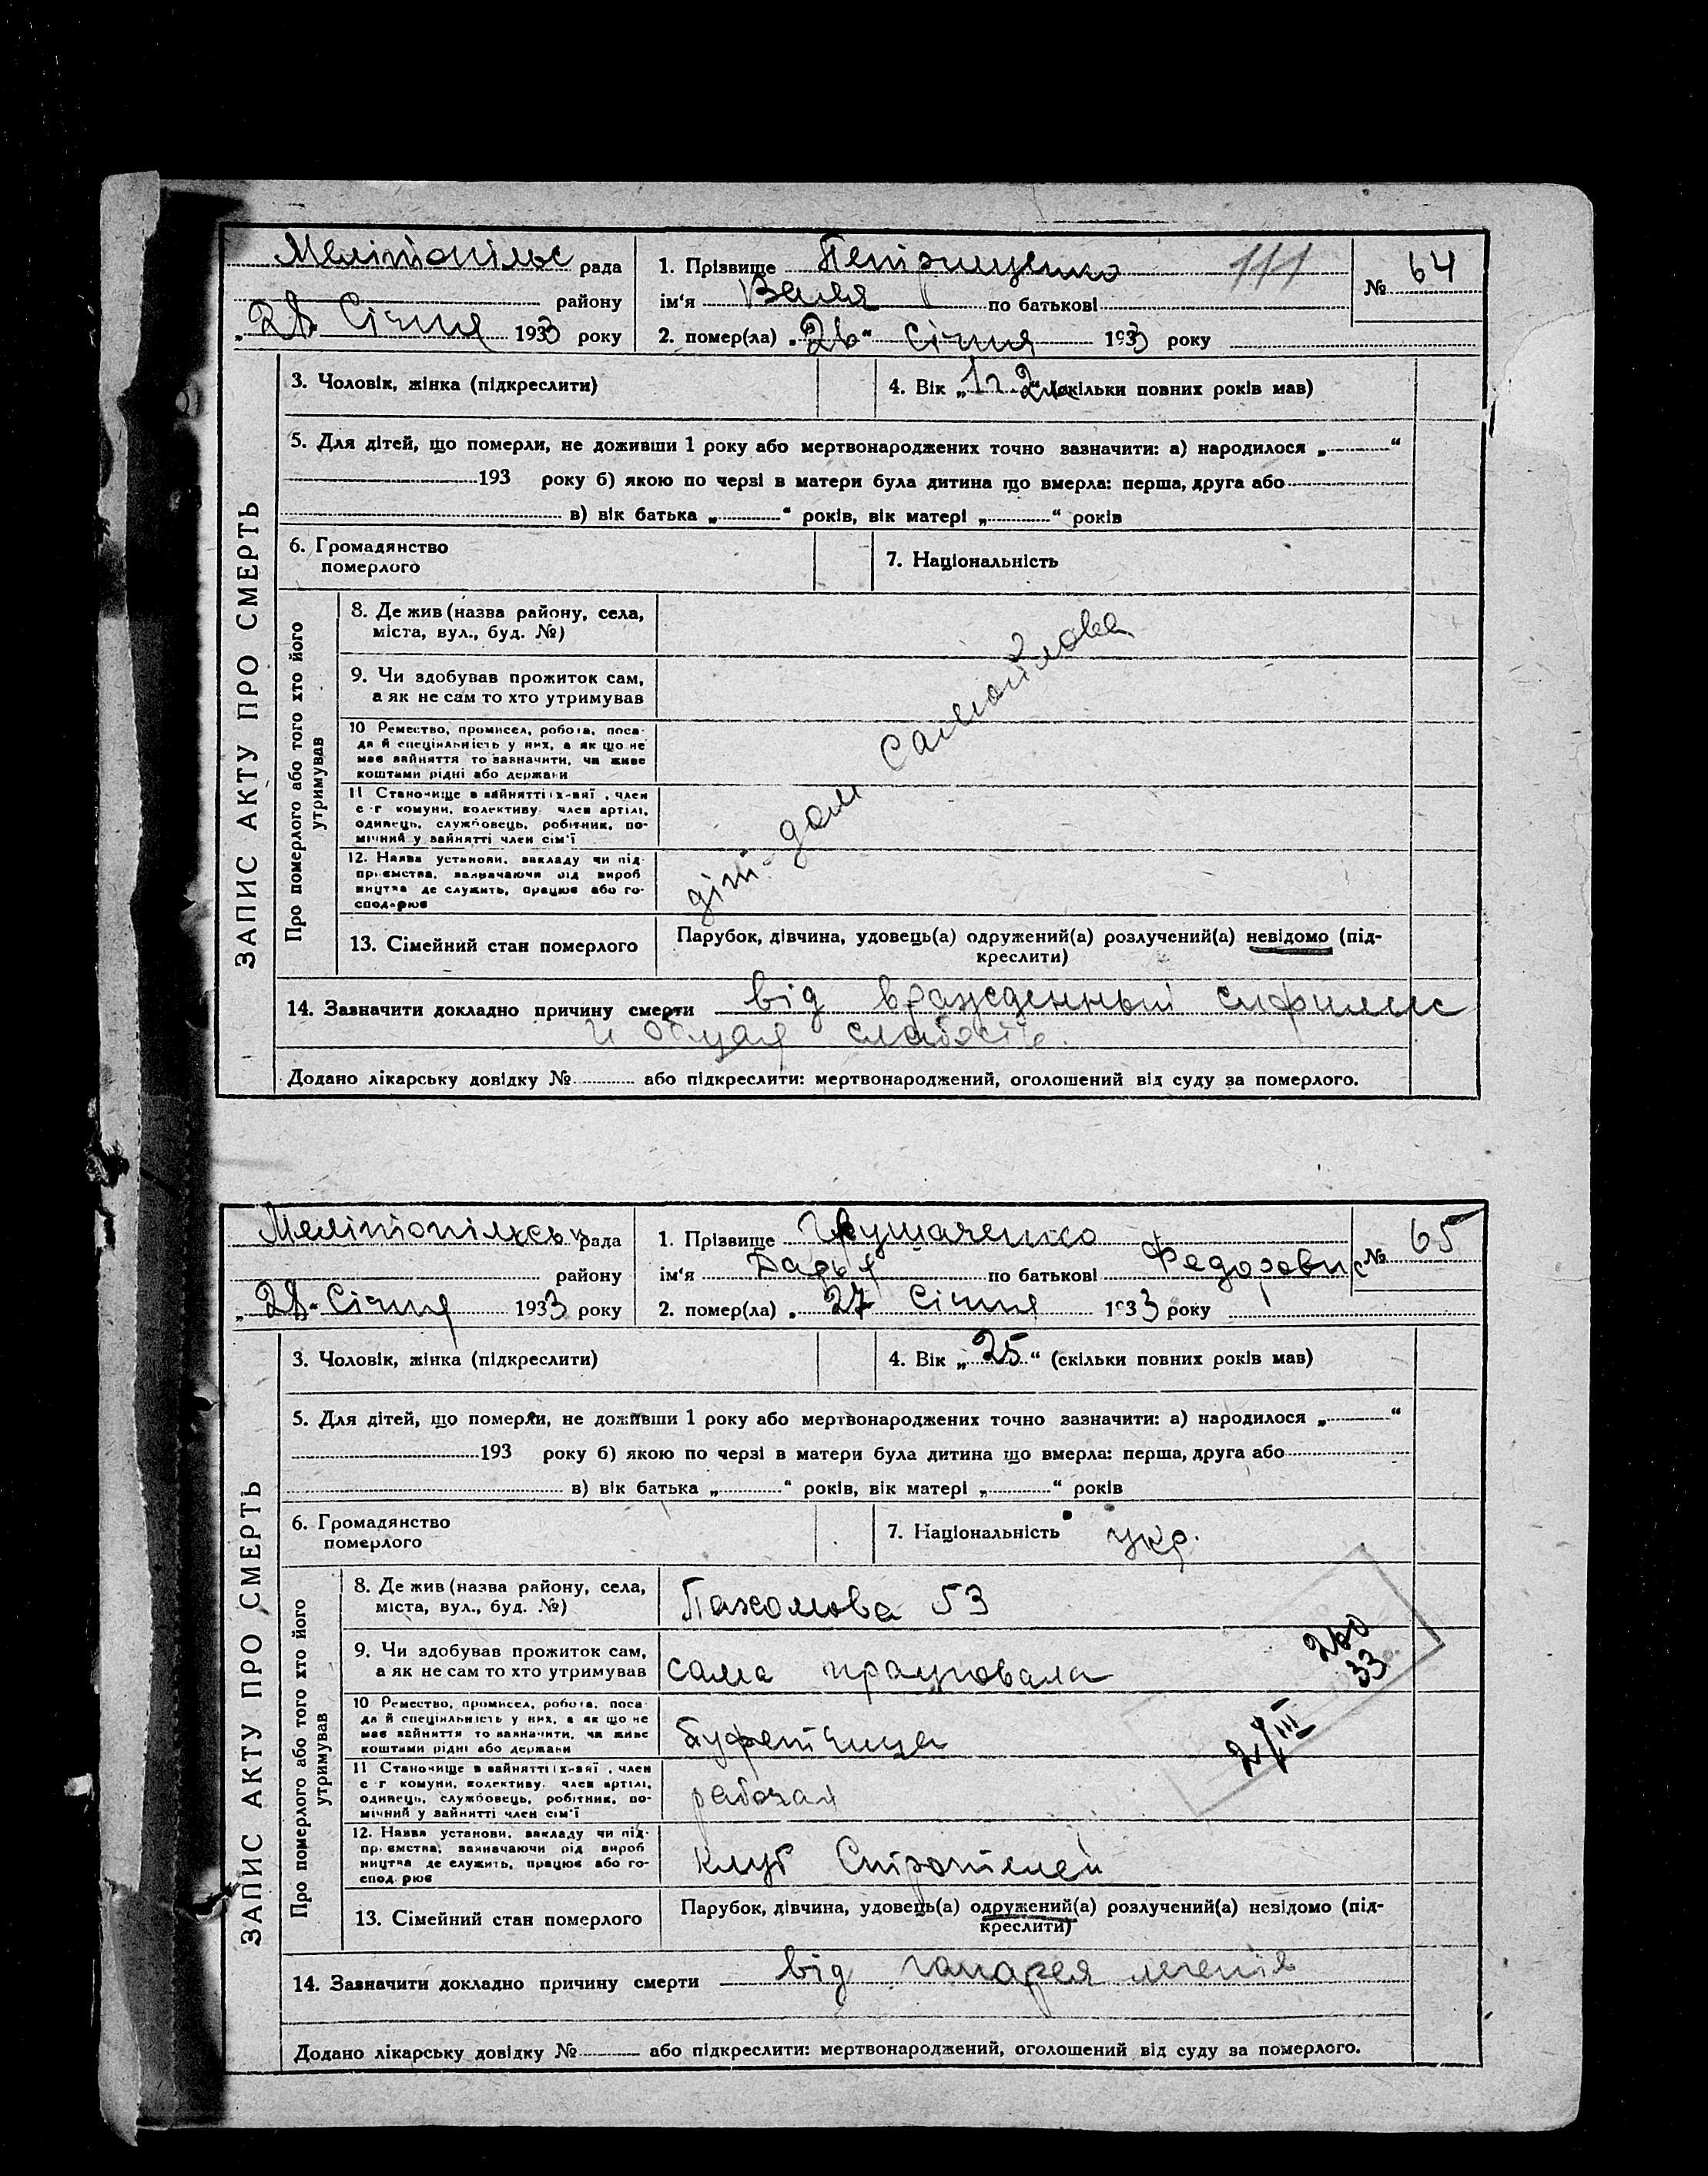 Мелітопільс рада
району
„28 Січня 1933 року
1. Прізвище Петрищенко 111
ім‘я Валя по батькові
2. помер(ла) „26“ Січня 1933 року
№ 64
ЗАПИС АКТУ ПРО СМЕРТЬ
3. Чоловік, жінка (підкреслити)
4. Вік „1 г 2 м“ (скільки повних років мав)
5. Для дітей, що померли, не доживши 1 року або мертвонароджених точно зазначити: а) народилося „ “
193 року б) якою по черзі в матери була дитина що вмерла: перша, друга або
в) вік батька „ “ років, вік матері „ “ років
6. Громадянство
померлого
7. Національність
Про померлого або того хто його
утримував
8. Де жив (назва району, села,
міста, вул., буд. №)
9. Чи здобував прожиток сам,
а як не сам то хто утримував
10 Ремество, промисел, робота, поса-
да й спеціяльність у них, а як що не
має зайняття то зазначити, чи живе
коштами рідні або держави
11 Становище в зайнятті, член
с-г комуни, колективу, член артілі,
одинець, службовець, робітник, по-
мічний у зайнятті член сім'ї
12. Назва установи, закладу чи під-
приємства, зазначаючи рід вироб
ництва де служить, працює або го-
сподарює
діт-дом Самойлова
13. Сімейний стан померлого
Парубок, дівчина, удовець(а) одружений(а) розлучений(а) невідомо (під-
креслити)
14. Зазначити докладно причину смерти від вражденный сифилис
и общая слабость.
Додано лікарську довідку № або підкреслити: мертвонароджений, оголошений від суду за померлого.
Мелітопільськ рада
району
„28 Січня 1933 року
1. Прізвище Грушаченко
ім‘я Дарья по батькові Федоровис
2. помер(ла) „ 27 Січня 1933 року
№ 65
ЗАПИС АКТУ ПРО СМЕРТЬ
3. Чоловік, жінка (підкреслити)
4. Вік „25“ (скільки повних років мав)
5. Для дітей, що померли, не доживши 1 року або мертвонароджених точно зазначити: а) народилося „ “
193 року б) якою по черзі в матери була дитина що вмерла: перша, друга або
в) вік батька „ “ років, вік матері „ “ років
6. Громадянство
померлого
7. Національність укр.
Про померлого або того хто його
утримував
8. Де жив (назва району, села,
міста, вул., буд. №)
Пахомова 53
9. Чи здобував прожиток сам,
а як не сам то хто утримував
сама працювала
10 Ремество, промисел, робота, поса-
да й спеціяльність у них, а як що не
має зайняття то зазначити, чи живе
коштами рідні або держави
буфетчица
11 Становище в зайнятті, член
с-г комуни, колективу, член артілі,
одинець, службовець, робітник, по-
мічний у зайнятті член сім'ї
рабочая
12. Назва установи, закладу чи під-
приємства, зазначаючи рід вироб
ництва де служить, працює або го-
сподарює
клуб Строителей
33
III
13. Сімейний стан померлого
Парубок, дівчина, удовець(а) одружений(а) розлучений(а) невідомо (під-
креслити)
14. Зазначити докладно причину смерти від легенів
Додано лікарську довідку № або підкреслити: мертвонароджений, оголошений від суду за померлого.